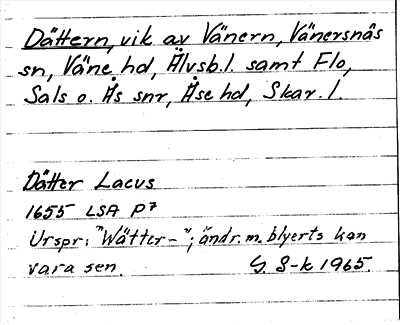 Dättern, vik av Vänern, Vänersnäs
sn, Väne hd, Älvsb.l. samt Flo,
Sals o. Ås snr, Åse hd, Skar.l.
Dätter Lacus
1655 LSA P7
Urspr: "Wätter-"; ändr. m. blyerts kan
vara sen. G. S-k 1965.